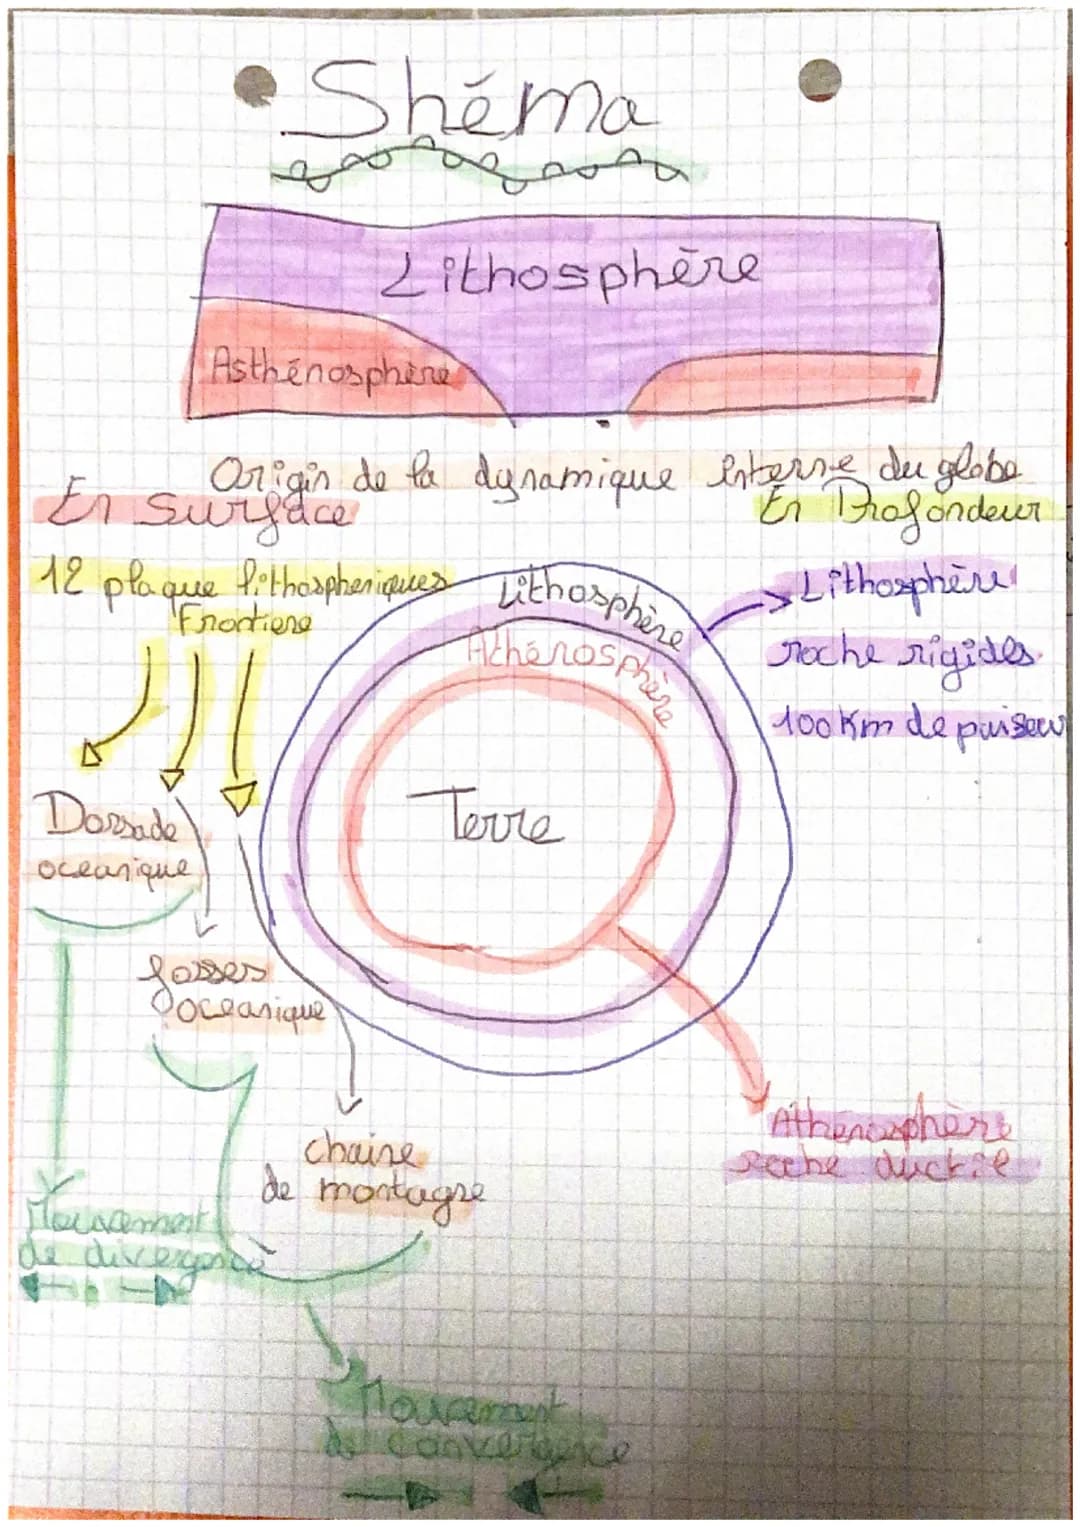 Shéma
Lithosphère
Asthénosphère
Origin de la dynamique interne du globe
En Surface
En Profondeur
12 plaque lithospheriques
Frontiere
Lithosphère
Athénosphère
Terre
Lithosphère
roche rigides
100 Km de paiseur
Dorsade
oceanique
fosses
oceanique
chaine
de montagne
Mouvement
de divergence
Mouvement
de convergence
Athénosphère
roche ductil